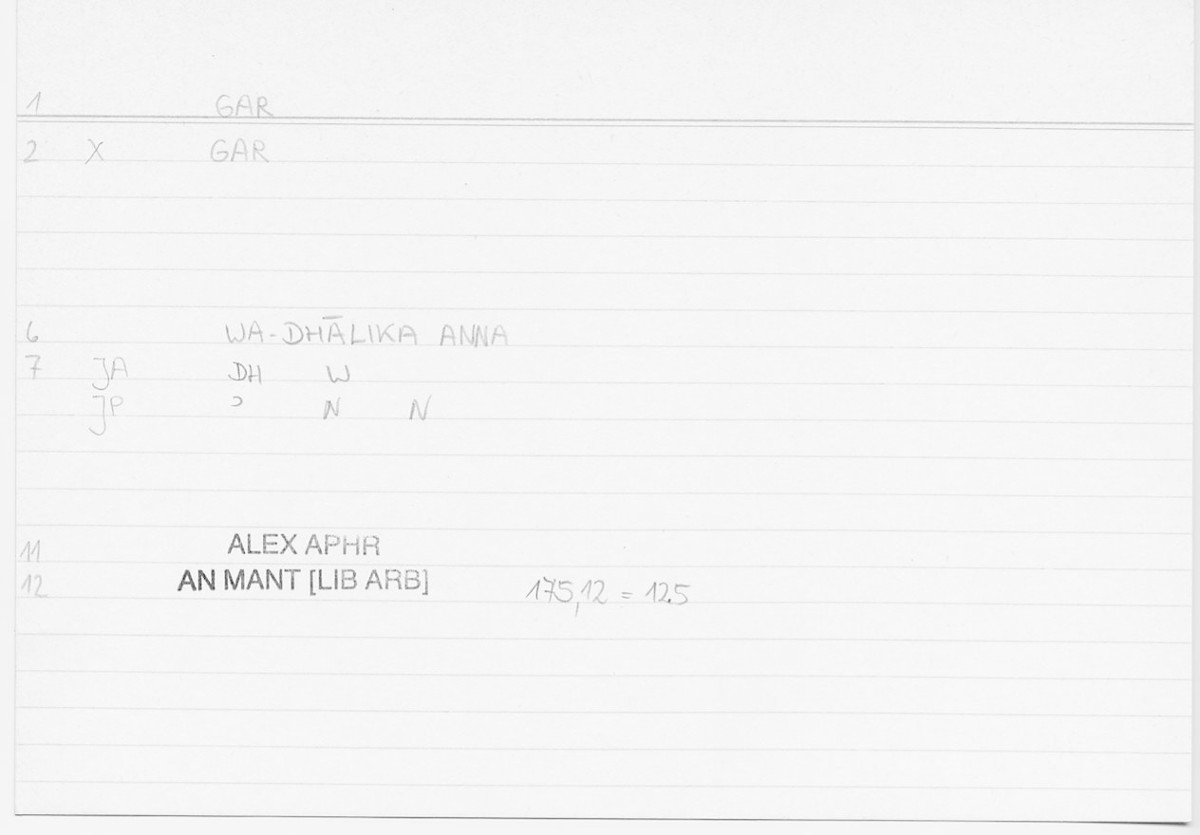 1 GAR
2 X GAR
6 WA-DHĀLIKA ANNA
7 JA DH W
JP ɔ N N
11 ALEX APHR
12 AN MANT [LIB ARB] 175,12 = 12.5